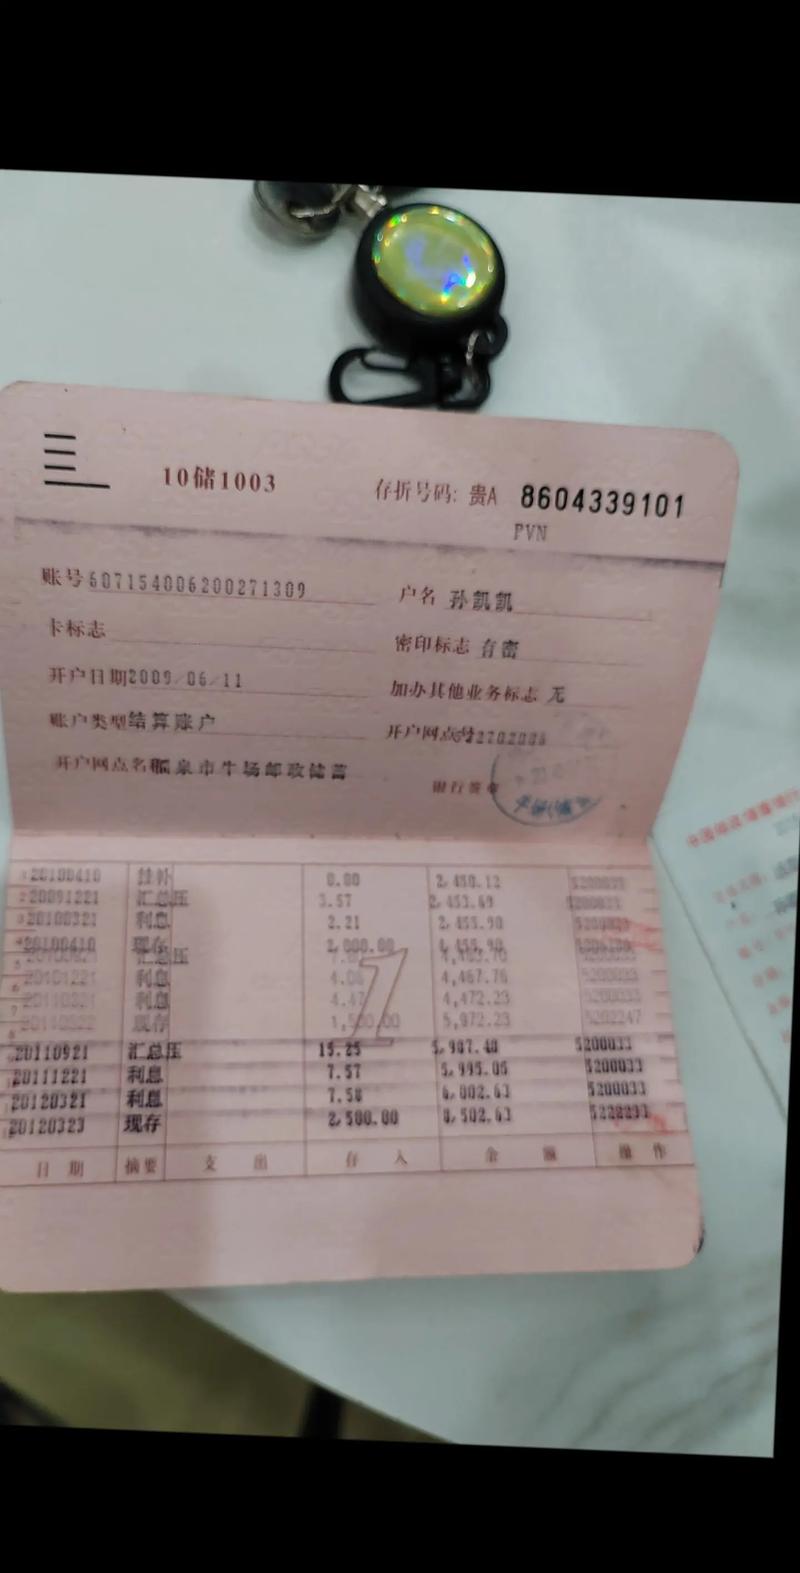 10储1003
存折号码: 贵A 8604339101
PVN
账号 607154006200271309
户名 孙凯凯
卡标志
密印标志 有密
开户日期 2009/06/11
加办其他业务标志 无
账户类型 结算账户
开户网点号
开户网点名称 泉市牛场邮政储蓄
银行签章
20100410 挂补 0.00 2,450.12
20091221 汇总压 3.57 2,453.69
20100321 利息 2.21 2,455.90
20100410 现存 2,000.00 4,455.90
汇总压
20101221 利息 4.06 4,467.76 5200033
20110321 利息 4.47 4,472.23 5200033
20110322 现存 1,500.00 5,972.23 5202247
20110921 汇总压 15.25 5,987.48 5200033
20111221 利息 7.57 5,995.05 5200033
20120321 利息 7.58 6,002.63 5200033
20120323 现存 2,500.00 8,502.63
日期 摘要 支出 存入 余额 操作
1